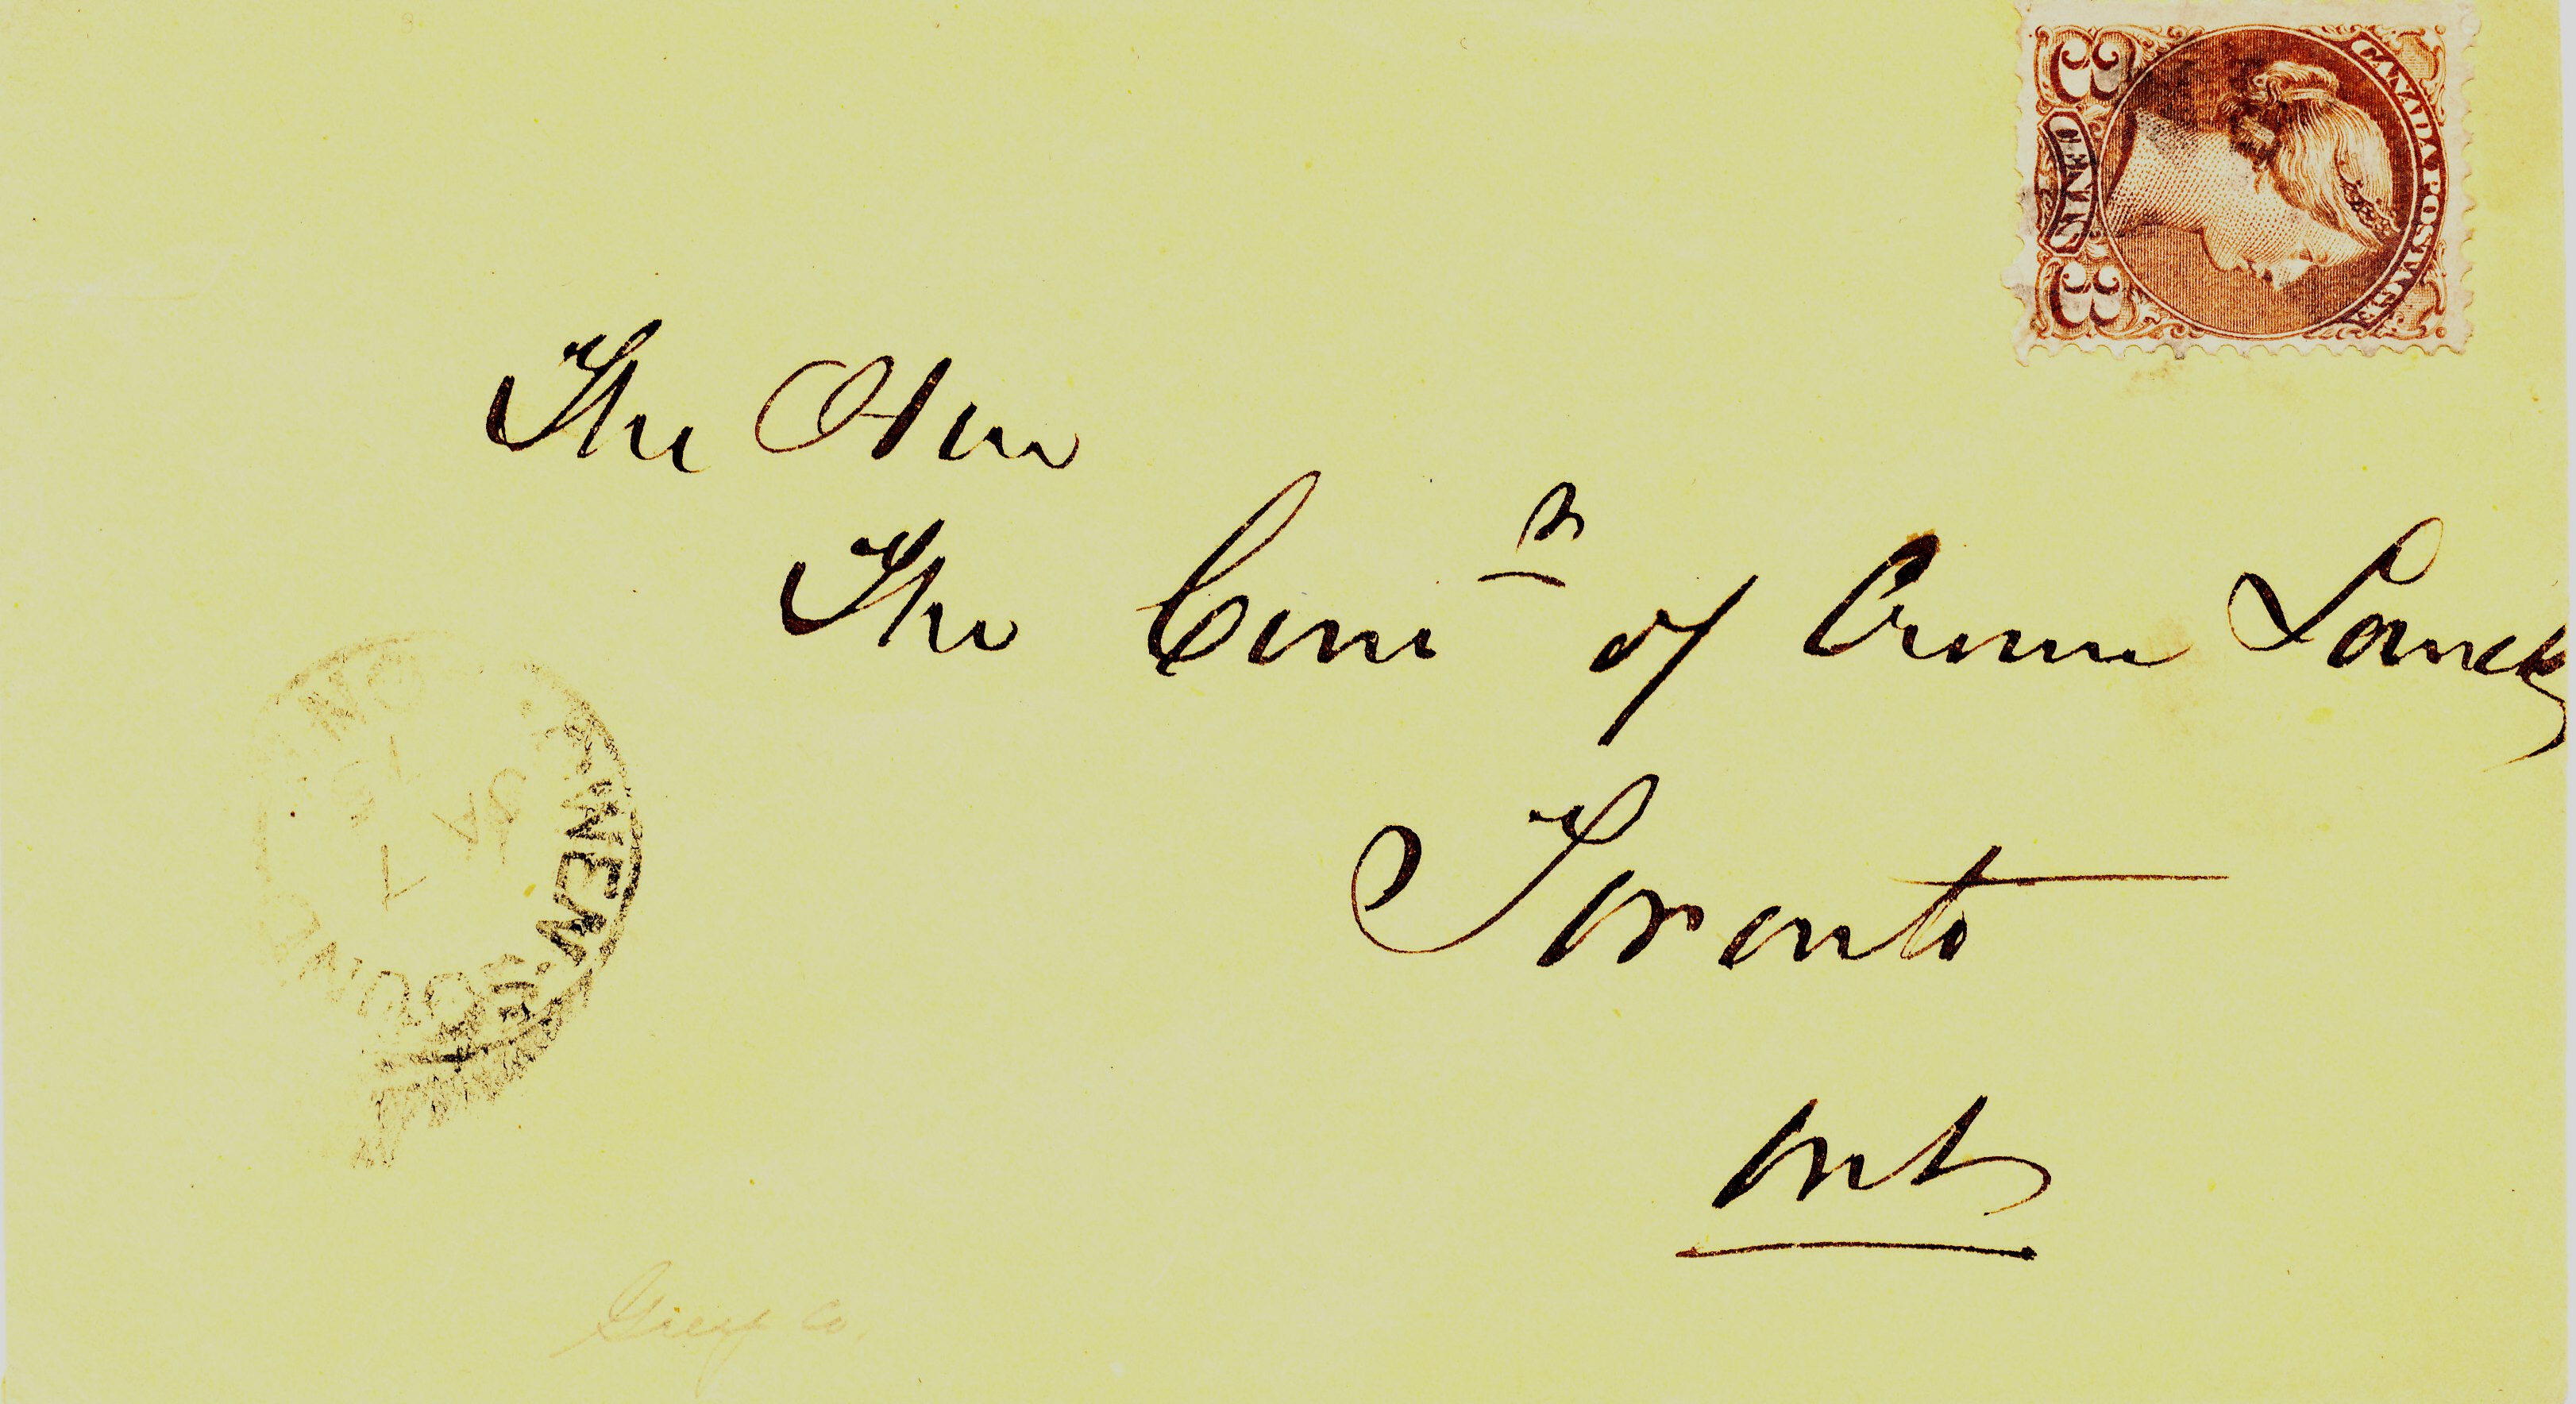 CANADA POSTAGE
3 CENTS 3
The Hon
The Com r of Crown Lands
Toronto
Ont
OWEN SOUND
ONT
Grey Co.